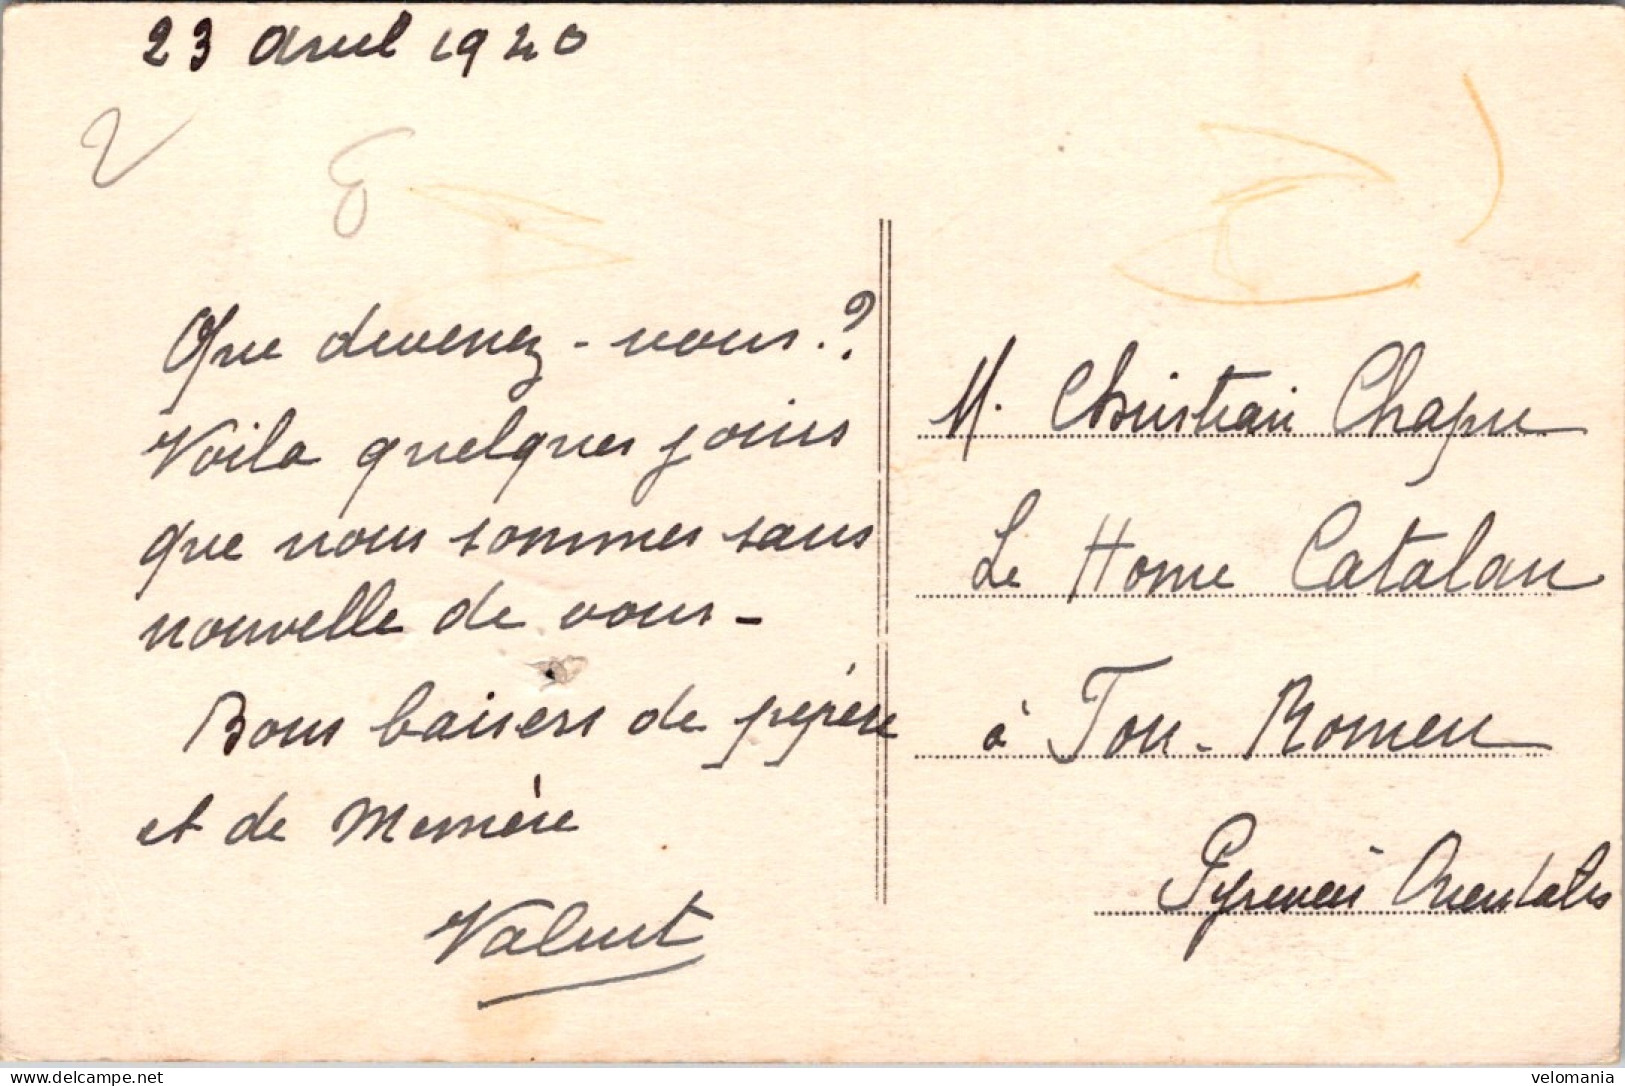 23 avril 1940
Que devenez-vous.?
Voila quelques jours
que nous sommes sans
nouvelle de vous-
Bons baisers de pépère
et de Memère
M. Christian
Le Home Catalan
à Fon-Romeu
Pyrenées Orientales
delcampe.net
velomania